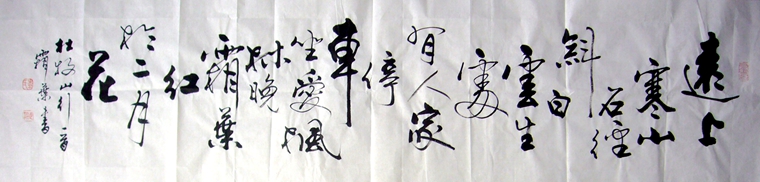 遠上
寒山
石徑
斜白
雲生
處
有人家
停
車
坐愛楓
林晚
霜葉
紅
於二月
花
杜牧山行一首
書